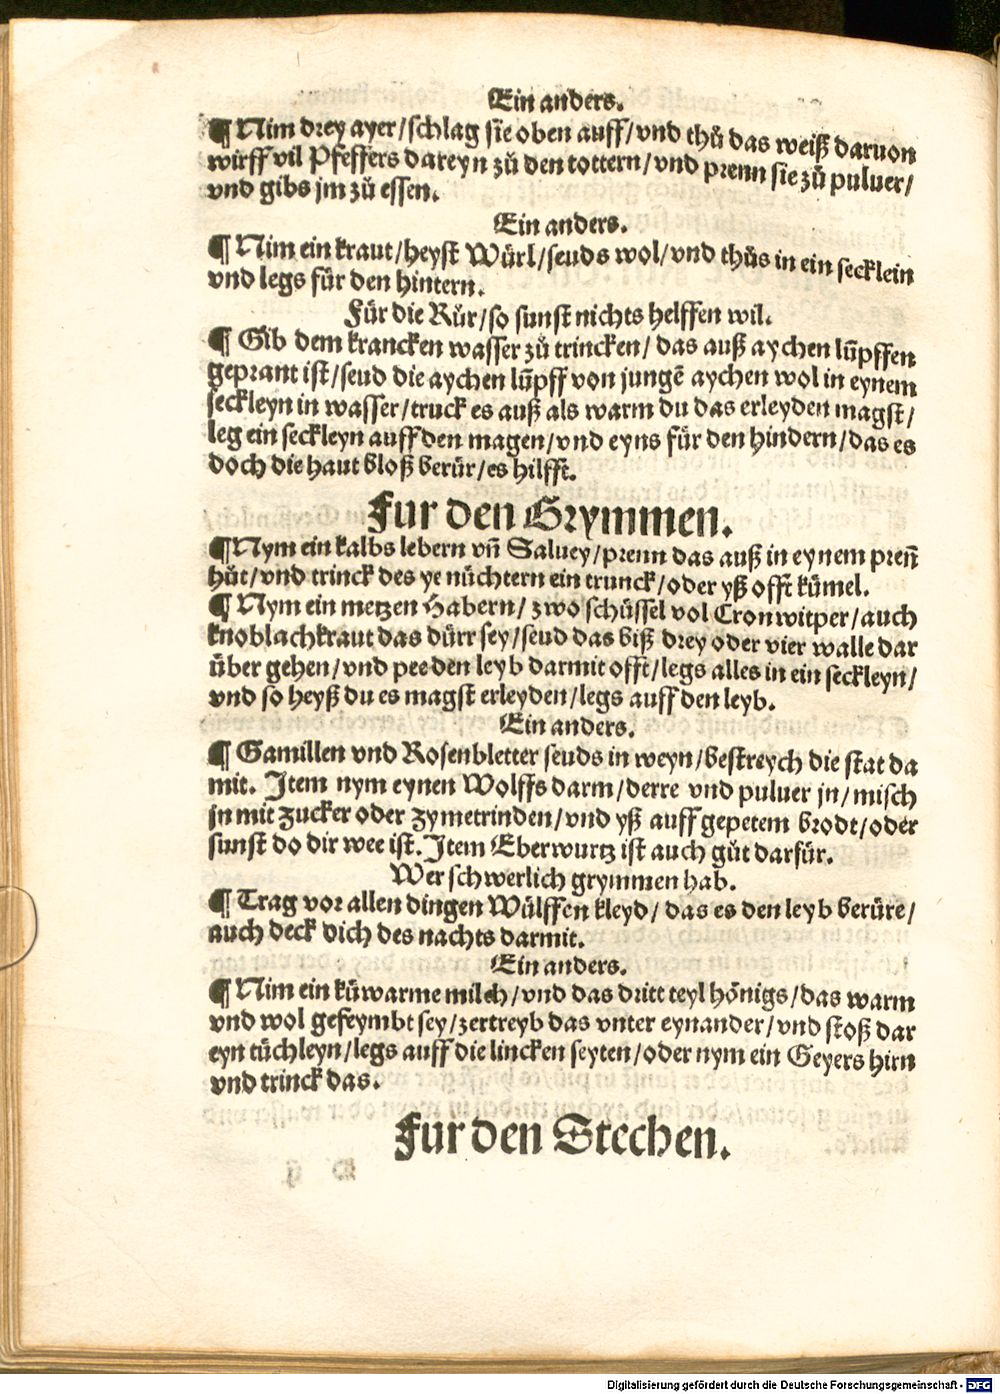 Ein anders.
¶ Nim drey ayer/schlag sie oben auff/vnd thů das weiß daruon
wirff vil Pfeffers dareyn zů den tottern/vnd prenn sie zů puluer/
vnd gibs jm zů essen.
Ein anders.
¶ Nim ein kraut/heyst Würl/seuds wol/vnd thůs in ein secklein
vnd legs für den hintern.
Für die Růr/so sunst nichts helffen wil.
¶ Gib dem krancken wasser zů trincken/ das auß aychen lüpffen
geprant ist/seud die aychen lüpff von jungē aychen wol in eynem
seckleyn in wasser/truck es auß als warm du das erleyden magst/
leg ein seckleyn auff den magen/vnd eyns für den hindern/das es
doch die haut bloß berür/es hilfft.
Fur den Grymmen.
¶ Nym ein kalbs lebern vñ Saluey/prenn das auß in eynem preñ
hůt/vnd trinck des ye nüchtern ein trunck/oder yß offt kümel.
¶ Nym ein metzen Habern/ zwo schüssel vol Cronwitper/auch
knoblachkraut das dürr sey/seud das biß drey oder vier walle dar
über gehen/vnd pee den leyb darmit offt/legs alles in ein seckleyn/
vnd so heyß du es magst erleyden/legs auff den leyb.
Ein anders.
¶ Gamillen vnd Rosenbletter seuds in weyn/bestreych die stat da
mit. Item nym eynen Wolffs darm/derre vnd puluer jn/misch
jn mit zucker oder zymetrinden/vnd yß auff gepetem brodt/oder
sunst do dir wee ist. Item Eberwurtz ist auch gůt darfür.
Wer schwerlich grymmen hab.
¶ Trag vor allen dingen Wülffen kleyd/ das es den leyb berüre/
auch deck dich des nachts darmit.
Ein anders.
¶ Nim ein küwarme milch/vnd das dritt teyl hönigs/das warm
vnd wol gefeymbt sey/zertreyb das vnter eynander/vnd stoß dar
eyn tüchleyn/legs auff die lincken seyten/oder nym ein Geyers hirn
vnd trinck das.
Fur den Stechen.
Digitalisierung gefördert durch die Deutsche Forschungsgemeinschaft - DFG